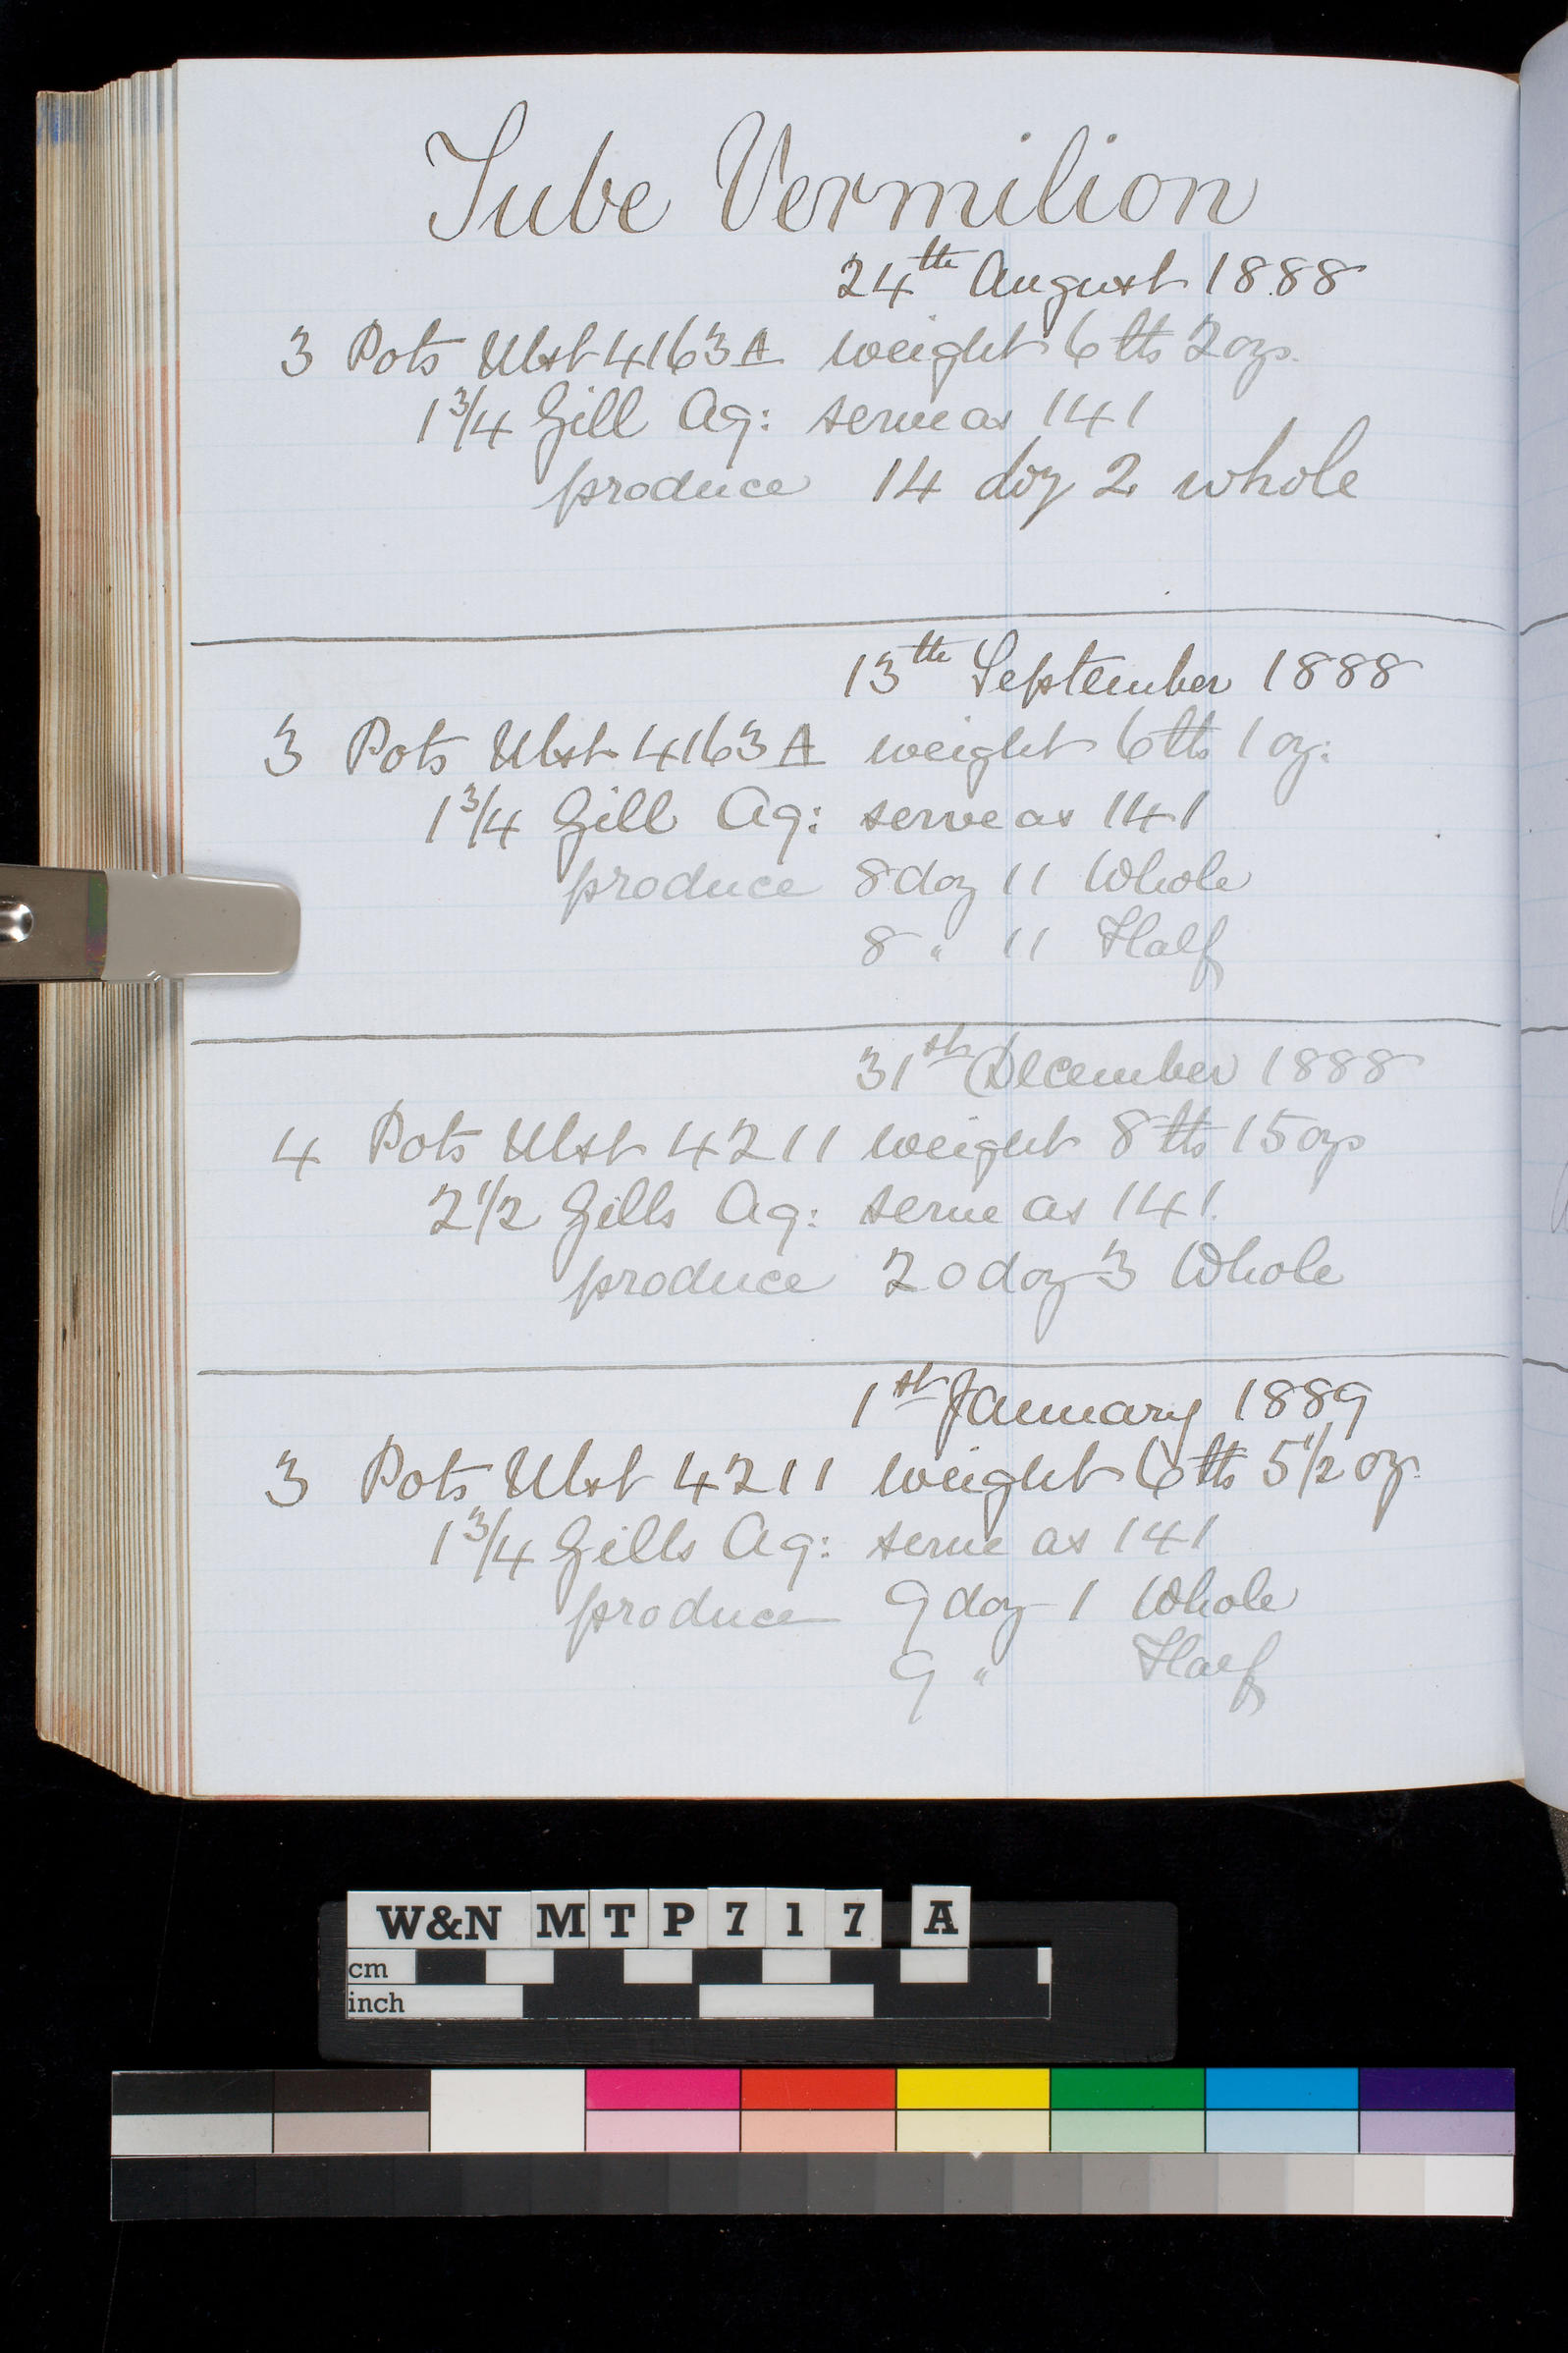 Tube Vermilion
24th August 1888
3 Pots Ulst 4163A weight 6 lbs 2 ozs.
1 3/4 Gill Aq: serve as 141
produce 14 doz 2 whole
13th September 1888
3 Pots Ulst 4163A weight 6 lbs 1 oz:
1 3/4 Gill Aq: serve as 141
produce 8 doz 11 Whole
8 " 11 Half
31st December 1888
4 Pots Ulst 4211 weight 8 lbs 15 ozs
2 1/2 Gills Aq: serve as 141.
produce 20 doz 3 Whole
1st January 1889
3 Pots Ulst 4211 weight 6 lbs 5 1/2 oz.
1 3/4 Gills Aq: serve as 141
produce 9 doz 1 Whole
9 " Half
W&N MTP717 A
cm
inch